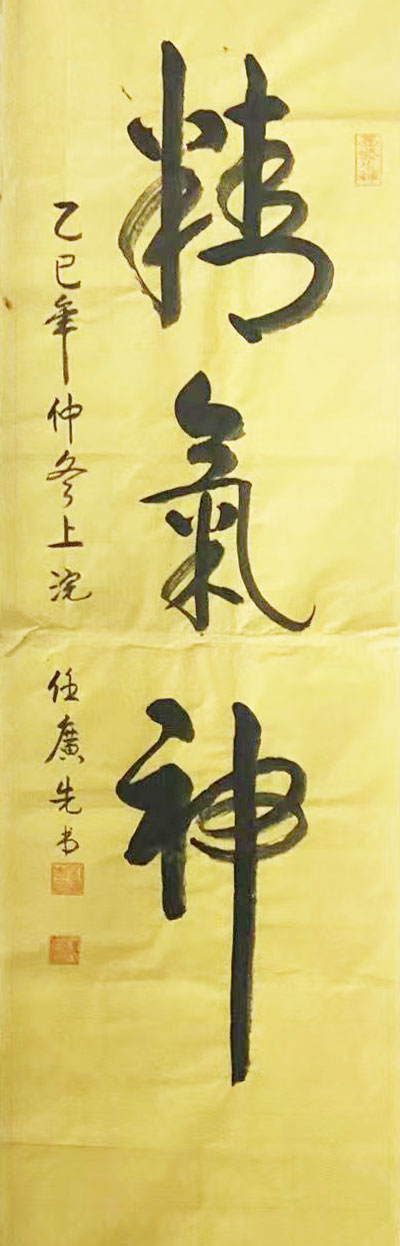 精氣神
乙巳年仲冬上浣 任廣先书